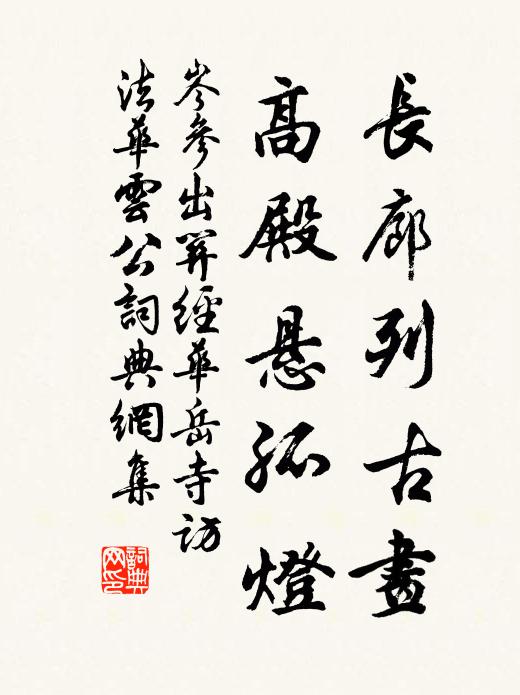 長廊列古畫
高殿悬孤燈
岑參出關經華岳寺訪
法華雲公詞典網集
詞典网印